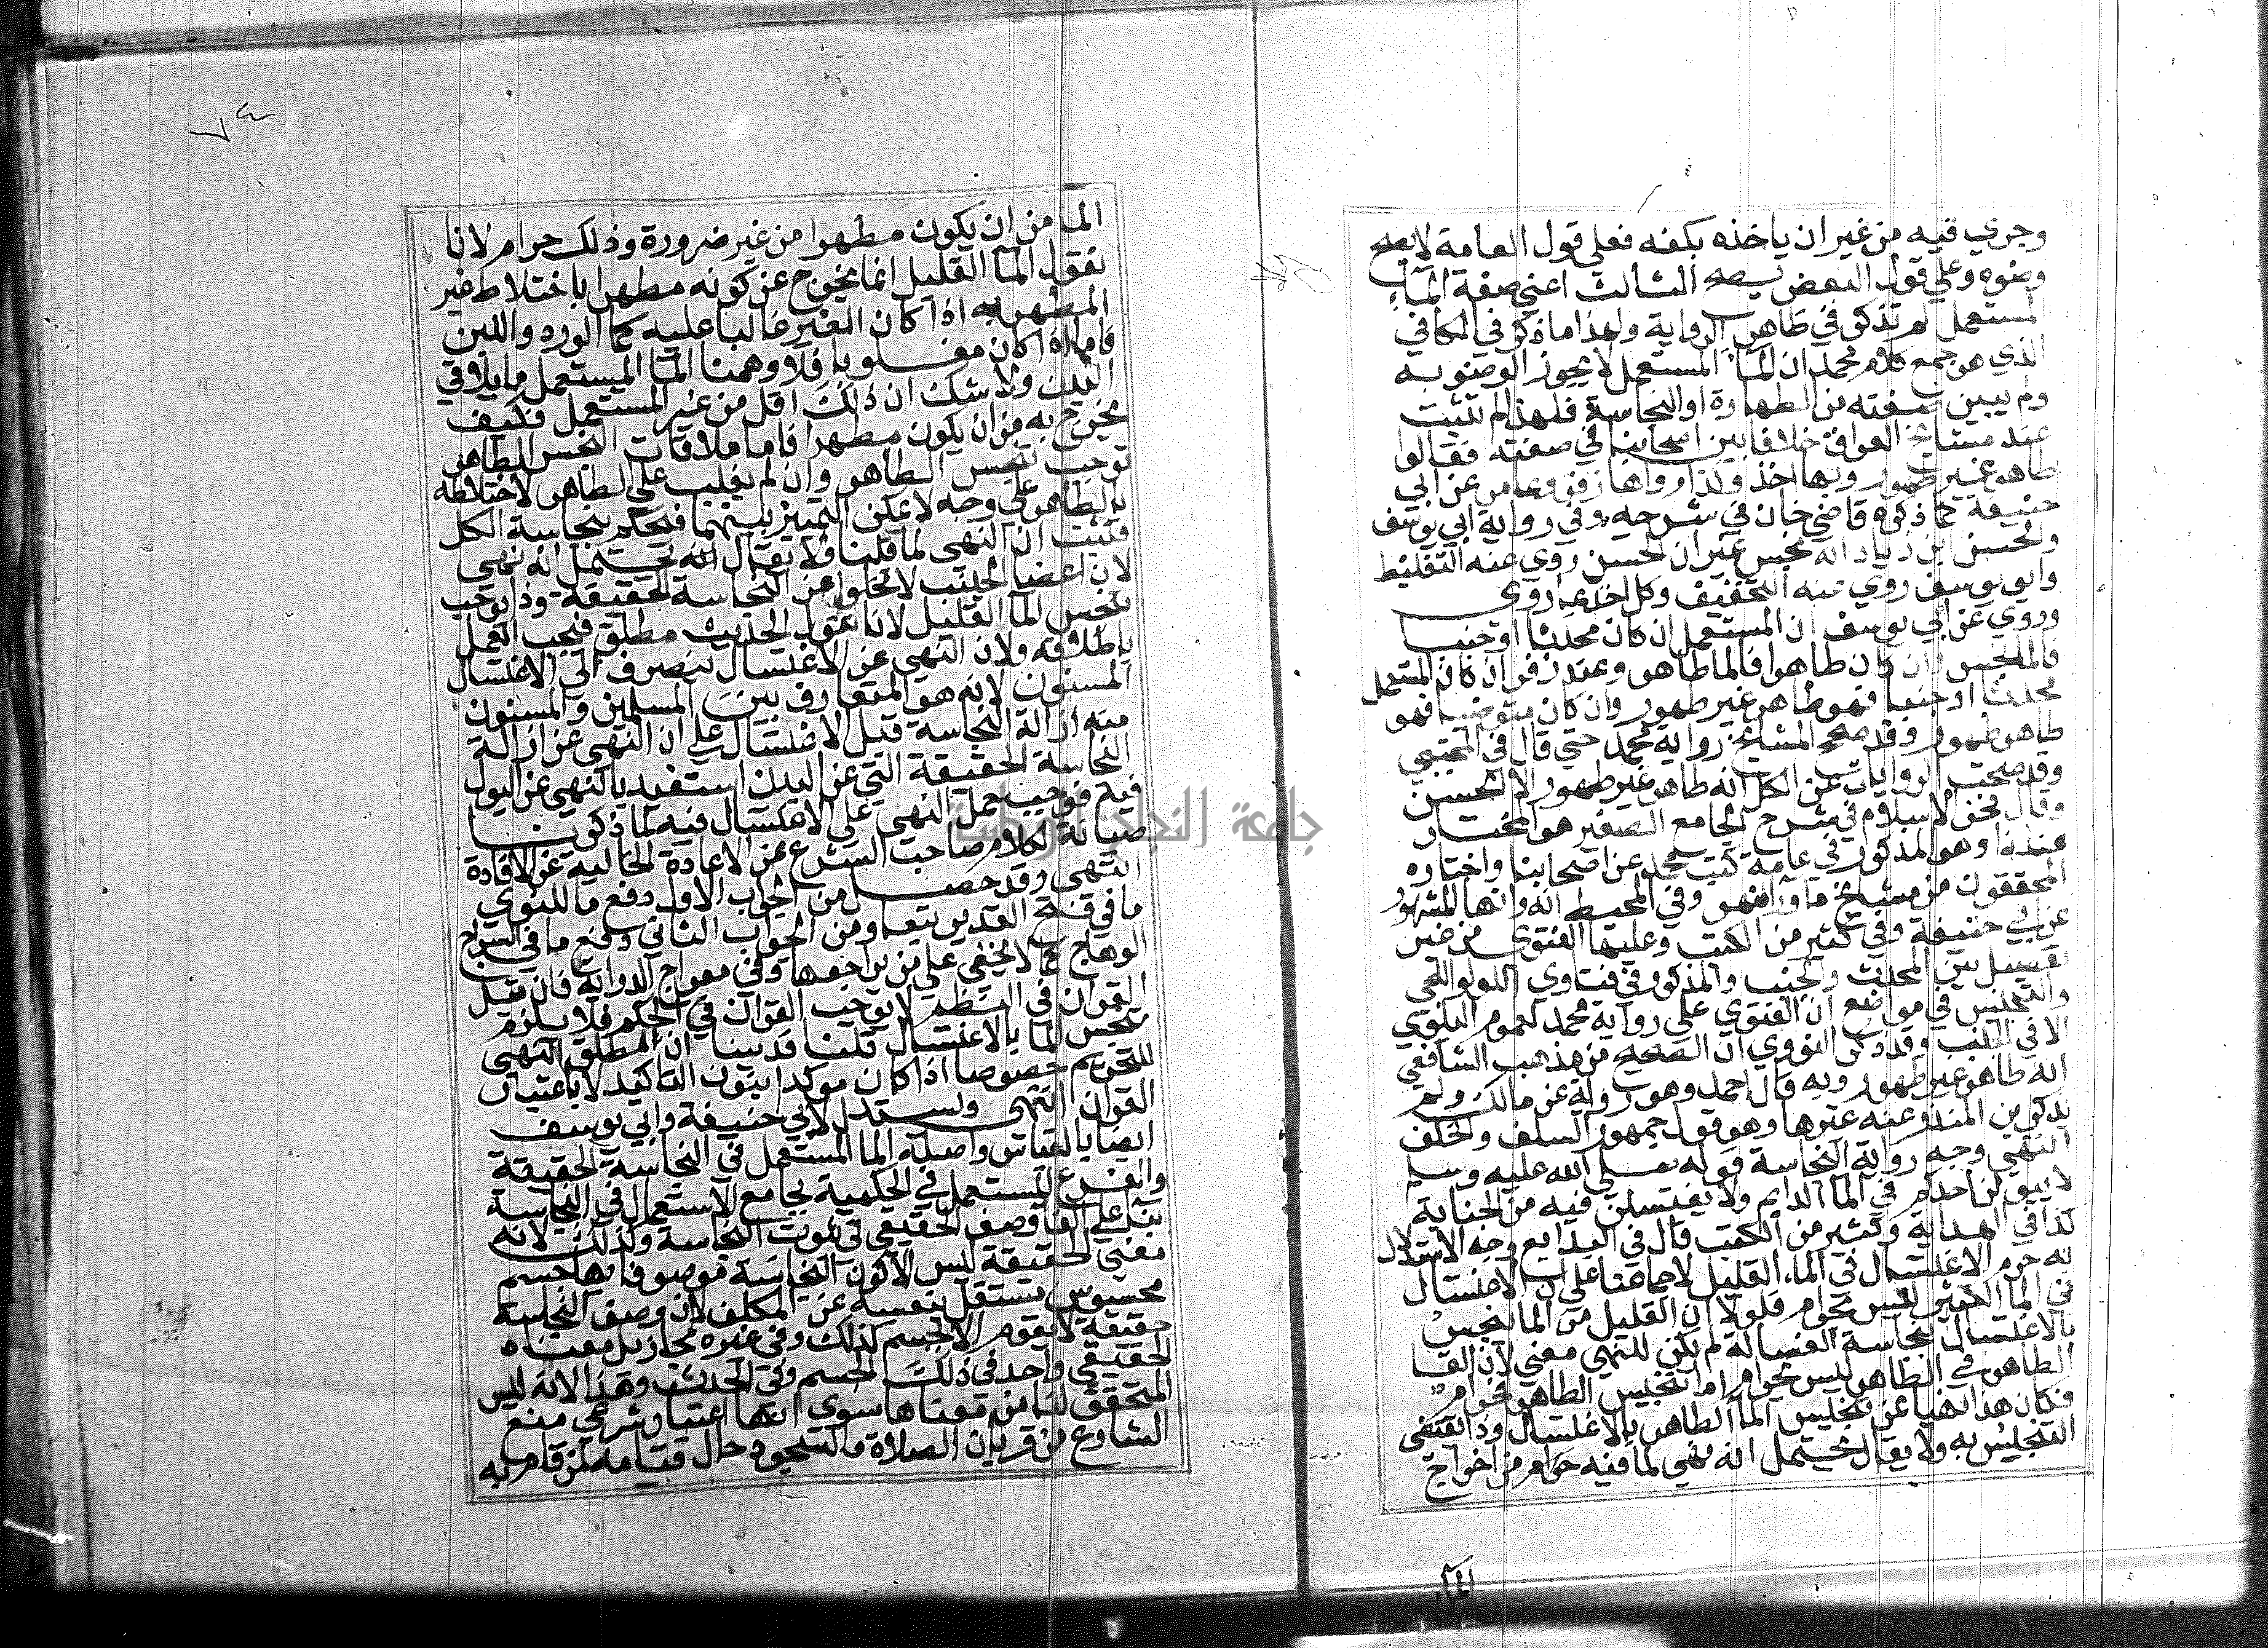 وجري فيه من غير ان ياخذه بكفه فعلي قول العامة لا يصح
وضوه وعلي قول البعض يصح الثالث اعني صفة الماء
المستعمل لم تذكر في ظاهر الرواية ولهذا ما ذكر في الكافي
الذي هو جمع كلام محمد ان الماء المستعمل لا يجوز الوضو به
ولم يبين صفته من الطهارة او النجاسة فلهذا لم تثبت
عند مشايخ العراق خلافا بين اصحابنا في صفته فقالوا
طاهر غير طهور وبها اخذ وكذا رواها زفر وعامر عن ابي
حنيفة كما ذكره قاضي خان في شرحه وفي رواية ابي يوسف
والحسن بن زياد انه نجس غير ان الحسن روي عنه التغليظ
وابو يوسف روي عنه التخفيف وكل اخذ بما روي
وروي عن ابي يوسف ان المستعمل ان كان محدثا او جنبا
فالما نجس وان كان طاهرا فالما طاهر وعند زفر ان كان المستعمل
محدثا او جنبا فهو طاهر غير طهور وان كان متوضيا فهو
طاهر طهور وقد صحح المشايخ رواية محمد حتي قال في المجتبي
وقد صحت الروايات عن الكل انه طاهر غير طهور الا الحسن
وقال فخر الاسلام في شرح الجامع الصغير هو المختار
عندنا وهو المذكور في عامة كتب محمد عن اصحابنا واختاره
المحققون من مشايخ ما ورا النهر وفي المحيط انه وانها المشهور
عن ابي حنيفة وفي كثير من الكتب وعليها الفتوي من غير
تفصيل بين المحدث والجنب والمذكور في فتاوي الولوالجي
والتجنيس في مواضع ان الفتوي علي رواية محمد لعموم البلوي
الا في الجنب وقد ذكر النووي ان الصحيح من مذهب الشافعي
انه طاهر غير طهور وبه قال احمد وهو رواية عن مالك ولم
يذكر بن المنذر عنه غيرها وهو قول جمهور السلف والخلف
انتهي وجه رواية النجاسة قوله صلي الله عليه وسلم
لا يبولن احدكم في الما الدايم ولا يغتسلن فيه من الجنابة
كذا في الهداية وكثير من الكتب قال في البدايع وجه الاستدلال
به حرم الاغتسال في الماء القليل لاجماعنا علي ان الاغتسال
في الما الكثير ليس بحرام فلولا ان القليل من الما ينجس
بالاغتسال بنجاسة الغسالة لم يكن للنهي معني لان القا
الطاهر في الطاهر ليس بحرام اما تنجيس الطاهر فحرام
فكان هذا نهيا عن تنجيس الما الطاهر بالاغتسال وذا يقتضي
التنجيس به ولا يقال يحتمل انه نهي لما فيه حرام من اخراج
الما
الما من ان يكون مطهرا من غير ضرورة وذلك حرام لانا
نقول الما القليل انما يخرج عن كونه مطهرا باختلاط غير
المطهر به اذا كان الغير غالبا عليه كما الورد واللبن
فاما اذا كان مغلوبا فلا وههنا الما المستعمل ما يلاقي
البدن ولا شك ان ذلك اقل من غير المستعمل فكيف
يخرج به من ان يكون مطهرا فاما ملاقات النجس الطاهر
توجب تنجس الطاهر وان لم يغلب علي الطاهر لاختلاطه
بالطاهر علي وجه لا يمكن التمييز بينهما فيحكم بنجاسة الكل
فثبت ان النهي لما قلنا ولا يقال انه يحتمل انه نهي
لان اعضا الجنب لا تخلوا عن النجاسة الحقيقة وذا يوجب
تنجس الما القليل لانا نقول الحديث مطلق فيجب العمل
باطلاقه ولان النهي عن الاغتسال ينصرف الي الاغتسال
المسنون لانه هو المتعارف بين المسلمين والمسنون
منه ازالة النجاسة قبل الاغتسال علي ان النهي عن ازالة
النجاسة الحقيقة التي عن البدن استفيد بالنهي عن البول
فيه فوجب حمل النهي علي الاغتسال فيه لما ذكرنا
صيانة لكلام صاحب الشرع عن الاعادة الخالية عن الافادة
انتهي وقد حصل من الجواب الاول دفع ما للنووي
ما في فتح القدير تبعا ومن الجواب الثاني دفع ما في السراج
الوهاج كما لا يخفي علي من يراجعها وفي معراج الدراية فان قيل
القران في النظم لا يوجب القران في الحكم فلا يلزم
تنجس الما بالاغتسال قلنا قد بينا ان المطلق النهي
للتحريم خصوصا اذا كان موكدا بنون التاكيد لا باعتبار
القران انتهي ويستدل لابي حنيفة وابي يوسف
ايضا بالقياس واصله الما المستعمل في النجاسة الحقيقة
والفرع المستعمل في الحكمية بجامع الاستعمال في النجاسة
بنا علي الغا وصف الحقيقي في ثبوت النجاسة وذلك لانه
معني الحقيقة ليس الا كون النجاسة موصوفا بها جسم
محسوس مستقل بنفسه عن المكلف لان وصف النجاسة
حقيقة لا يقوم الا بجسم كذلك وفي غيره مجاز بل معناه
الحقيقي واحد في ذلك الجسم وفي الحدث وهذا لانه ليس
المتحقق لنا من معناها سوي انها اعتبار شرعي منع
الشارع من قربان الصلاة والسجود حال قيامه لمن قام به
جامعة النجاح الوطنية